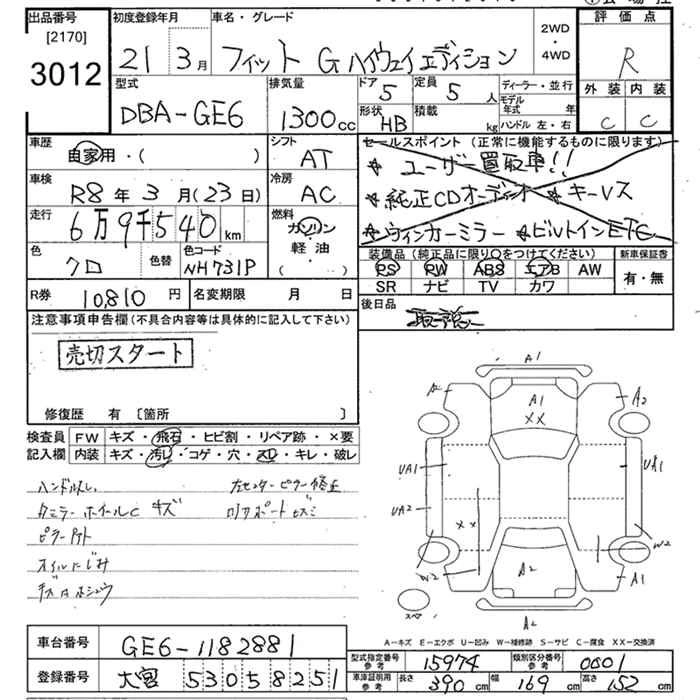 出品番号
[2170]
3012
初度登録年月
21 3月
車名・グレード
フィット G ハイウェイエディション
2WD
・
4WD
評価点
R
外装 内装
C C
型式
DBA-GE6
排気量
1300cc
ドア 5
定員 5人
形状 HB
積載 kg
ディーラー・並行
モデル年式 年
ハンドル 左・右
車歴
自家用・( )
シフト
AT
車検
R8年3月(23日)
冷房
AC
走行
6万9千540km
燃料
ガソリン
軽油
( )
色
クロ
色替
色コード
NH731P
セールスポイント(正常に機能するものに限ります)
★ ユーザー買取車!!
★純正CDオーディオ ★キーレス
★ウィンカーミラー ★ビルトインETC
装備品(純正品に限り○をつけてください)
PS PW ABS エアB AW
SR ナビ TV カワ
新車保証書
有・無
R券 10,810円
名変期限 月 日
後日品
取説
注意事項申告欄(不具合内容等は具体的に記入して下さい)
売切スタート
修復歴 有 [箇所 ]
検査員記入欄
FW キズ・飛石・ヒビ割・リペア跡・×要
内装 キズ・汚レ・コゲ・穴・スレ・キレ・破レ
ハンドルスレ
ホイールC キズ
オイルにじみ
A1
A2
A1
XX
UA1
UA1
UA2
XX
W2
W2
A2
A1
スペア
A2
A-キズ E-エクボ U-凹み W-補修跡 S-サビ C-腐食 XX-交換済
車台番号 GE6-1182881
登録番号 大宮 530 58251
型式指定番号 参考 15974
類別区分番号 参考 0001
車庫証明用 参考 長さ 390cm 幅 169cm 高さ 152cm